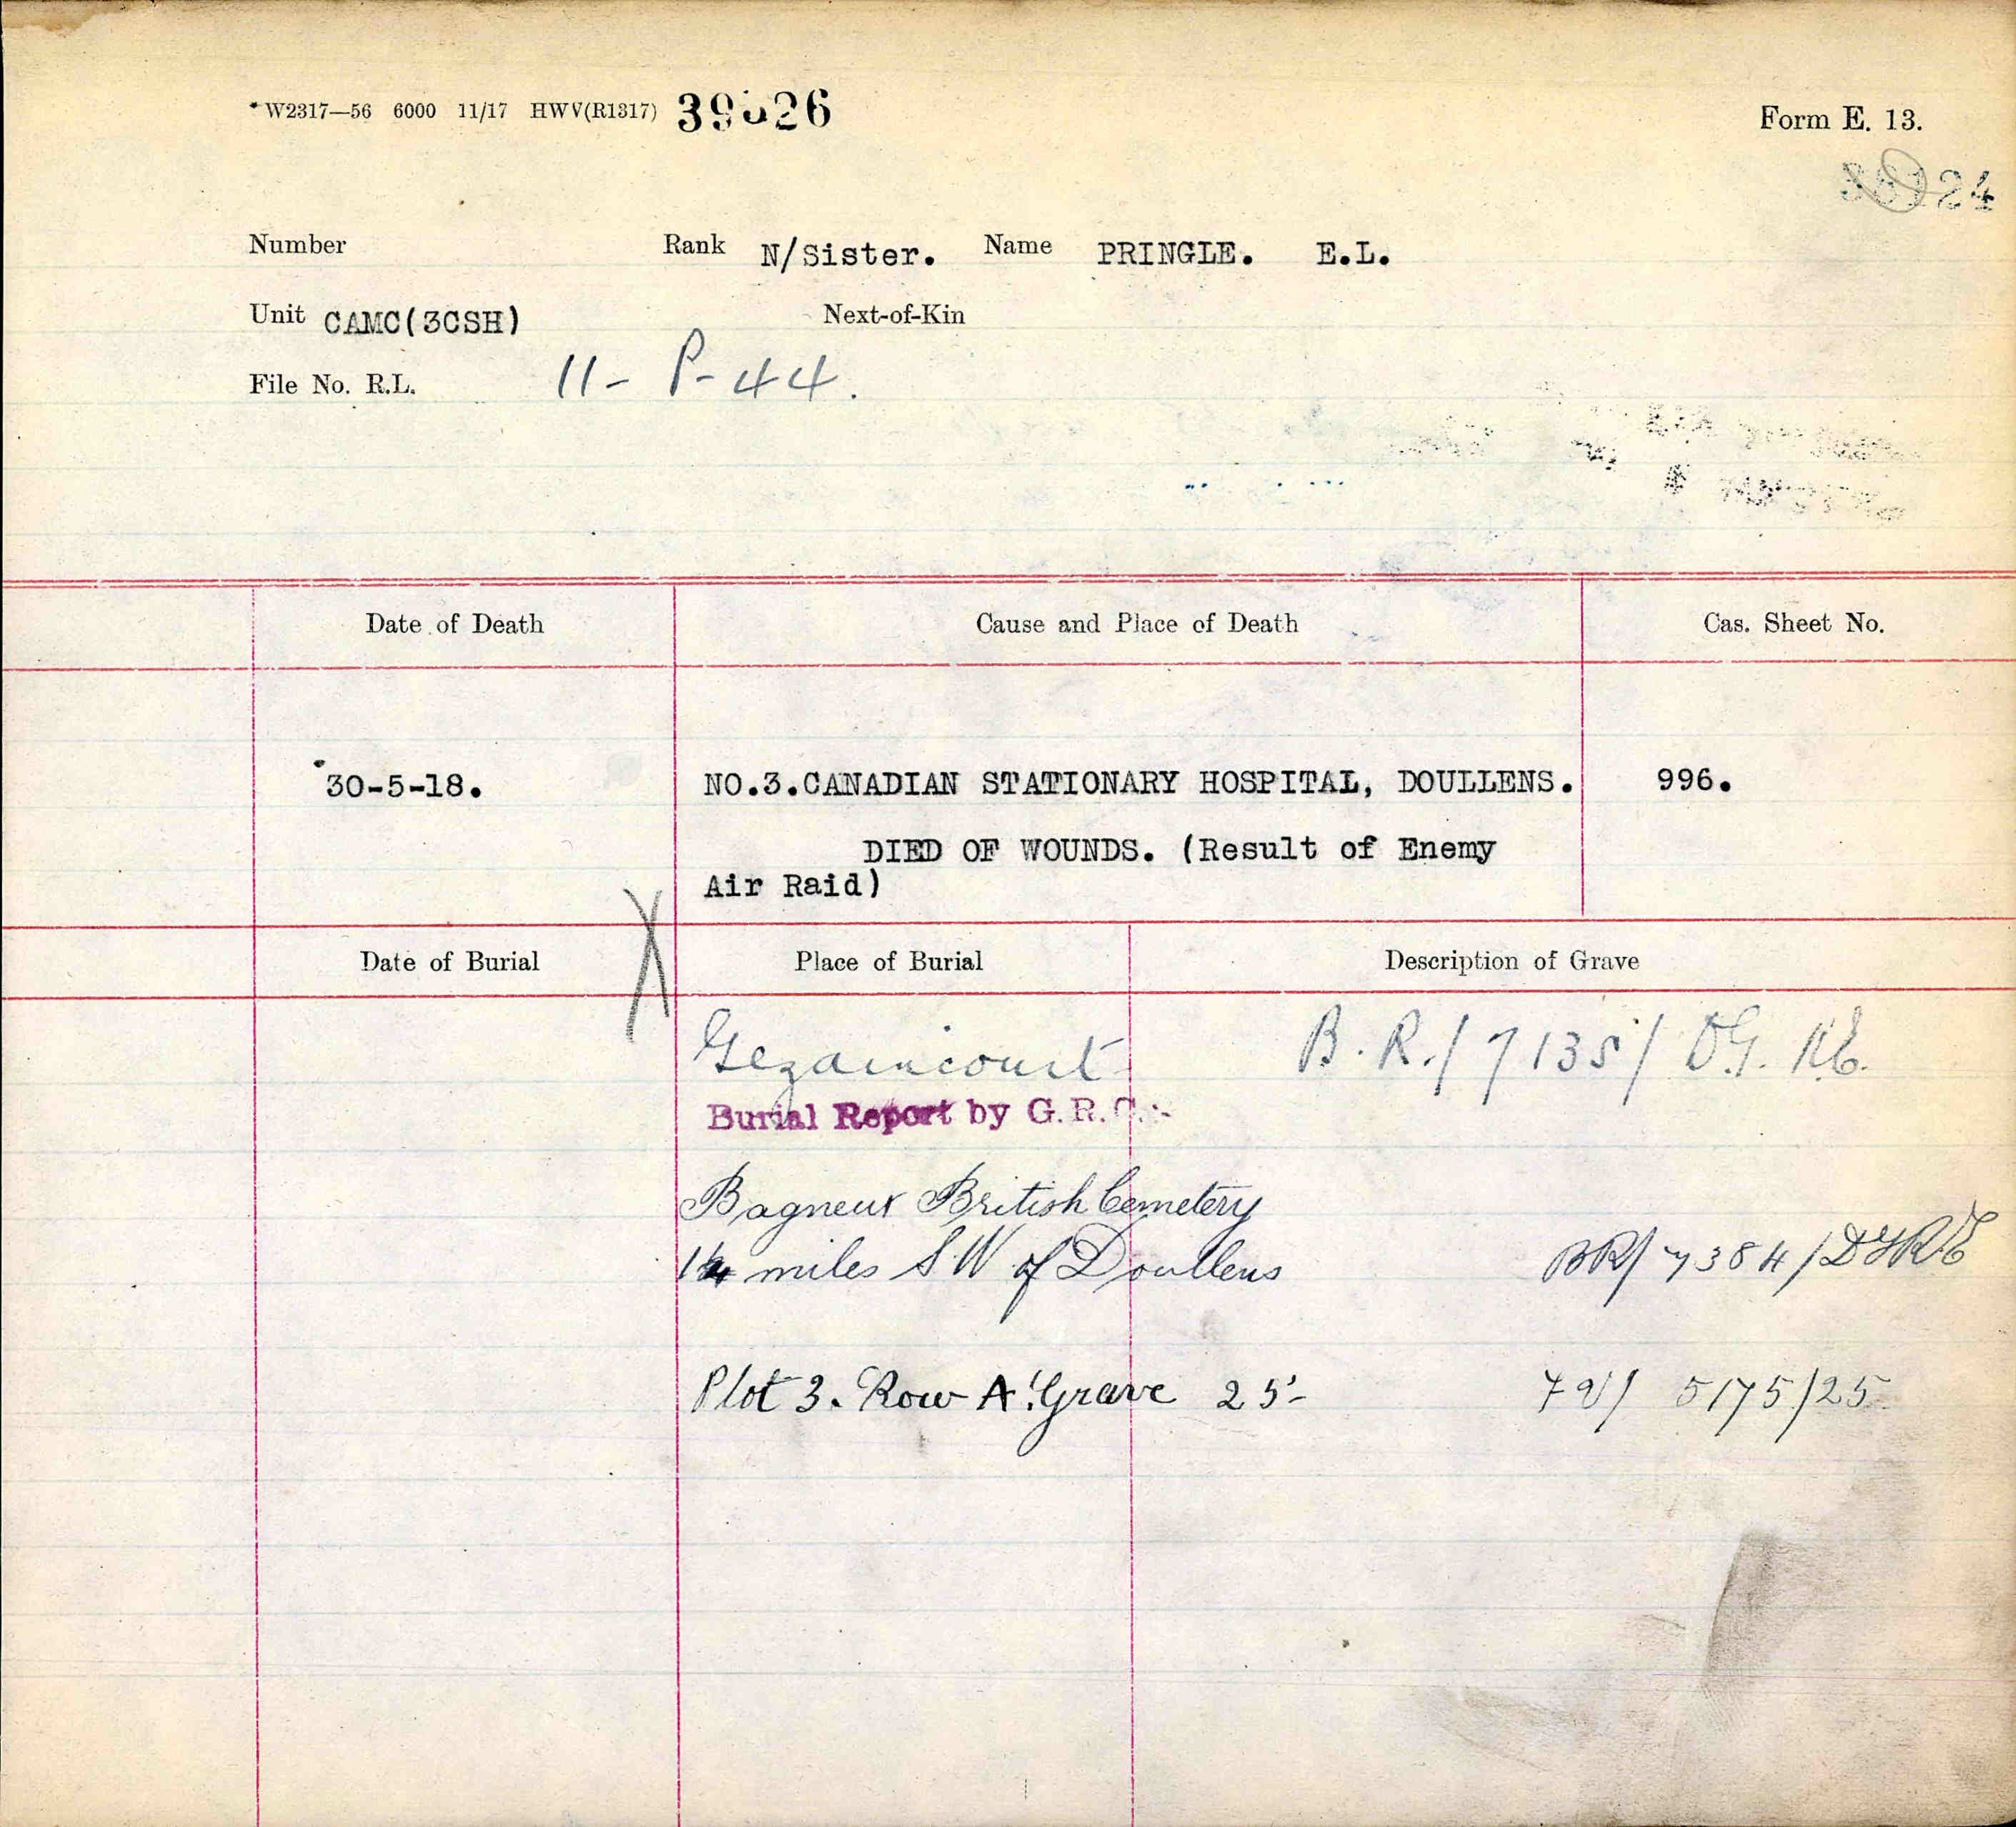 W2317—56 6000 11/17 HWV(R1317)
Form E. 13.
Number Rank N/Sister. Name PRINGLE. E.L.
Unit CAMC(3CSH) Next-of-Kin
File No. R.L. 11- P-44.
Date of Death Cause and Place of Death Cas. Sheet No.
30-5-18. NO.3.CANADIAN STATIONARY HOSPITAL, DOULLENS. 996.
DIED OF WOUNDS. (Result of Enemy
Air Raid)
Date of Burial Place of Burial Description of Grave
Gezaincourt B.R./7135/
Burial Report by G.R.
Bagneux British Cemetery
miles S.W of Doullens BR/7384/
Plot 3. Row A. Grave 25- 5175/25